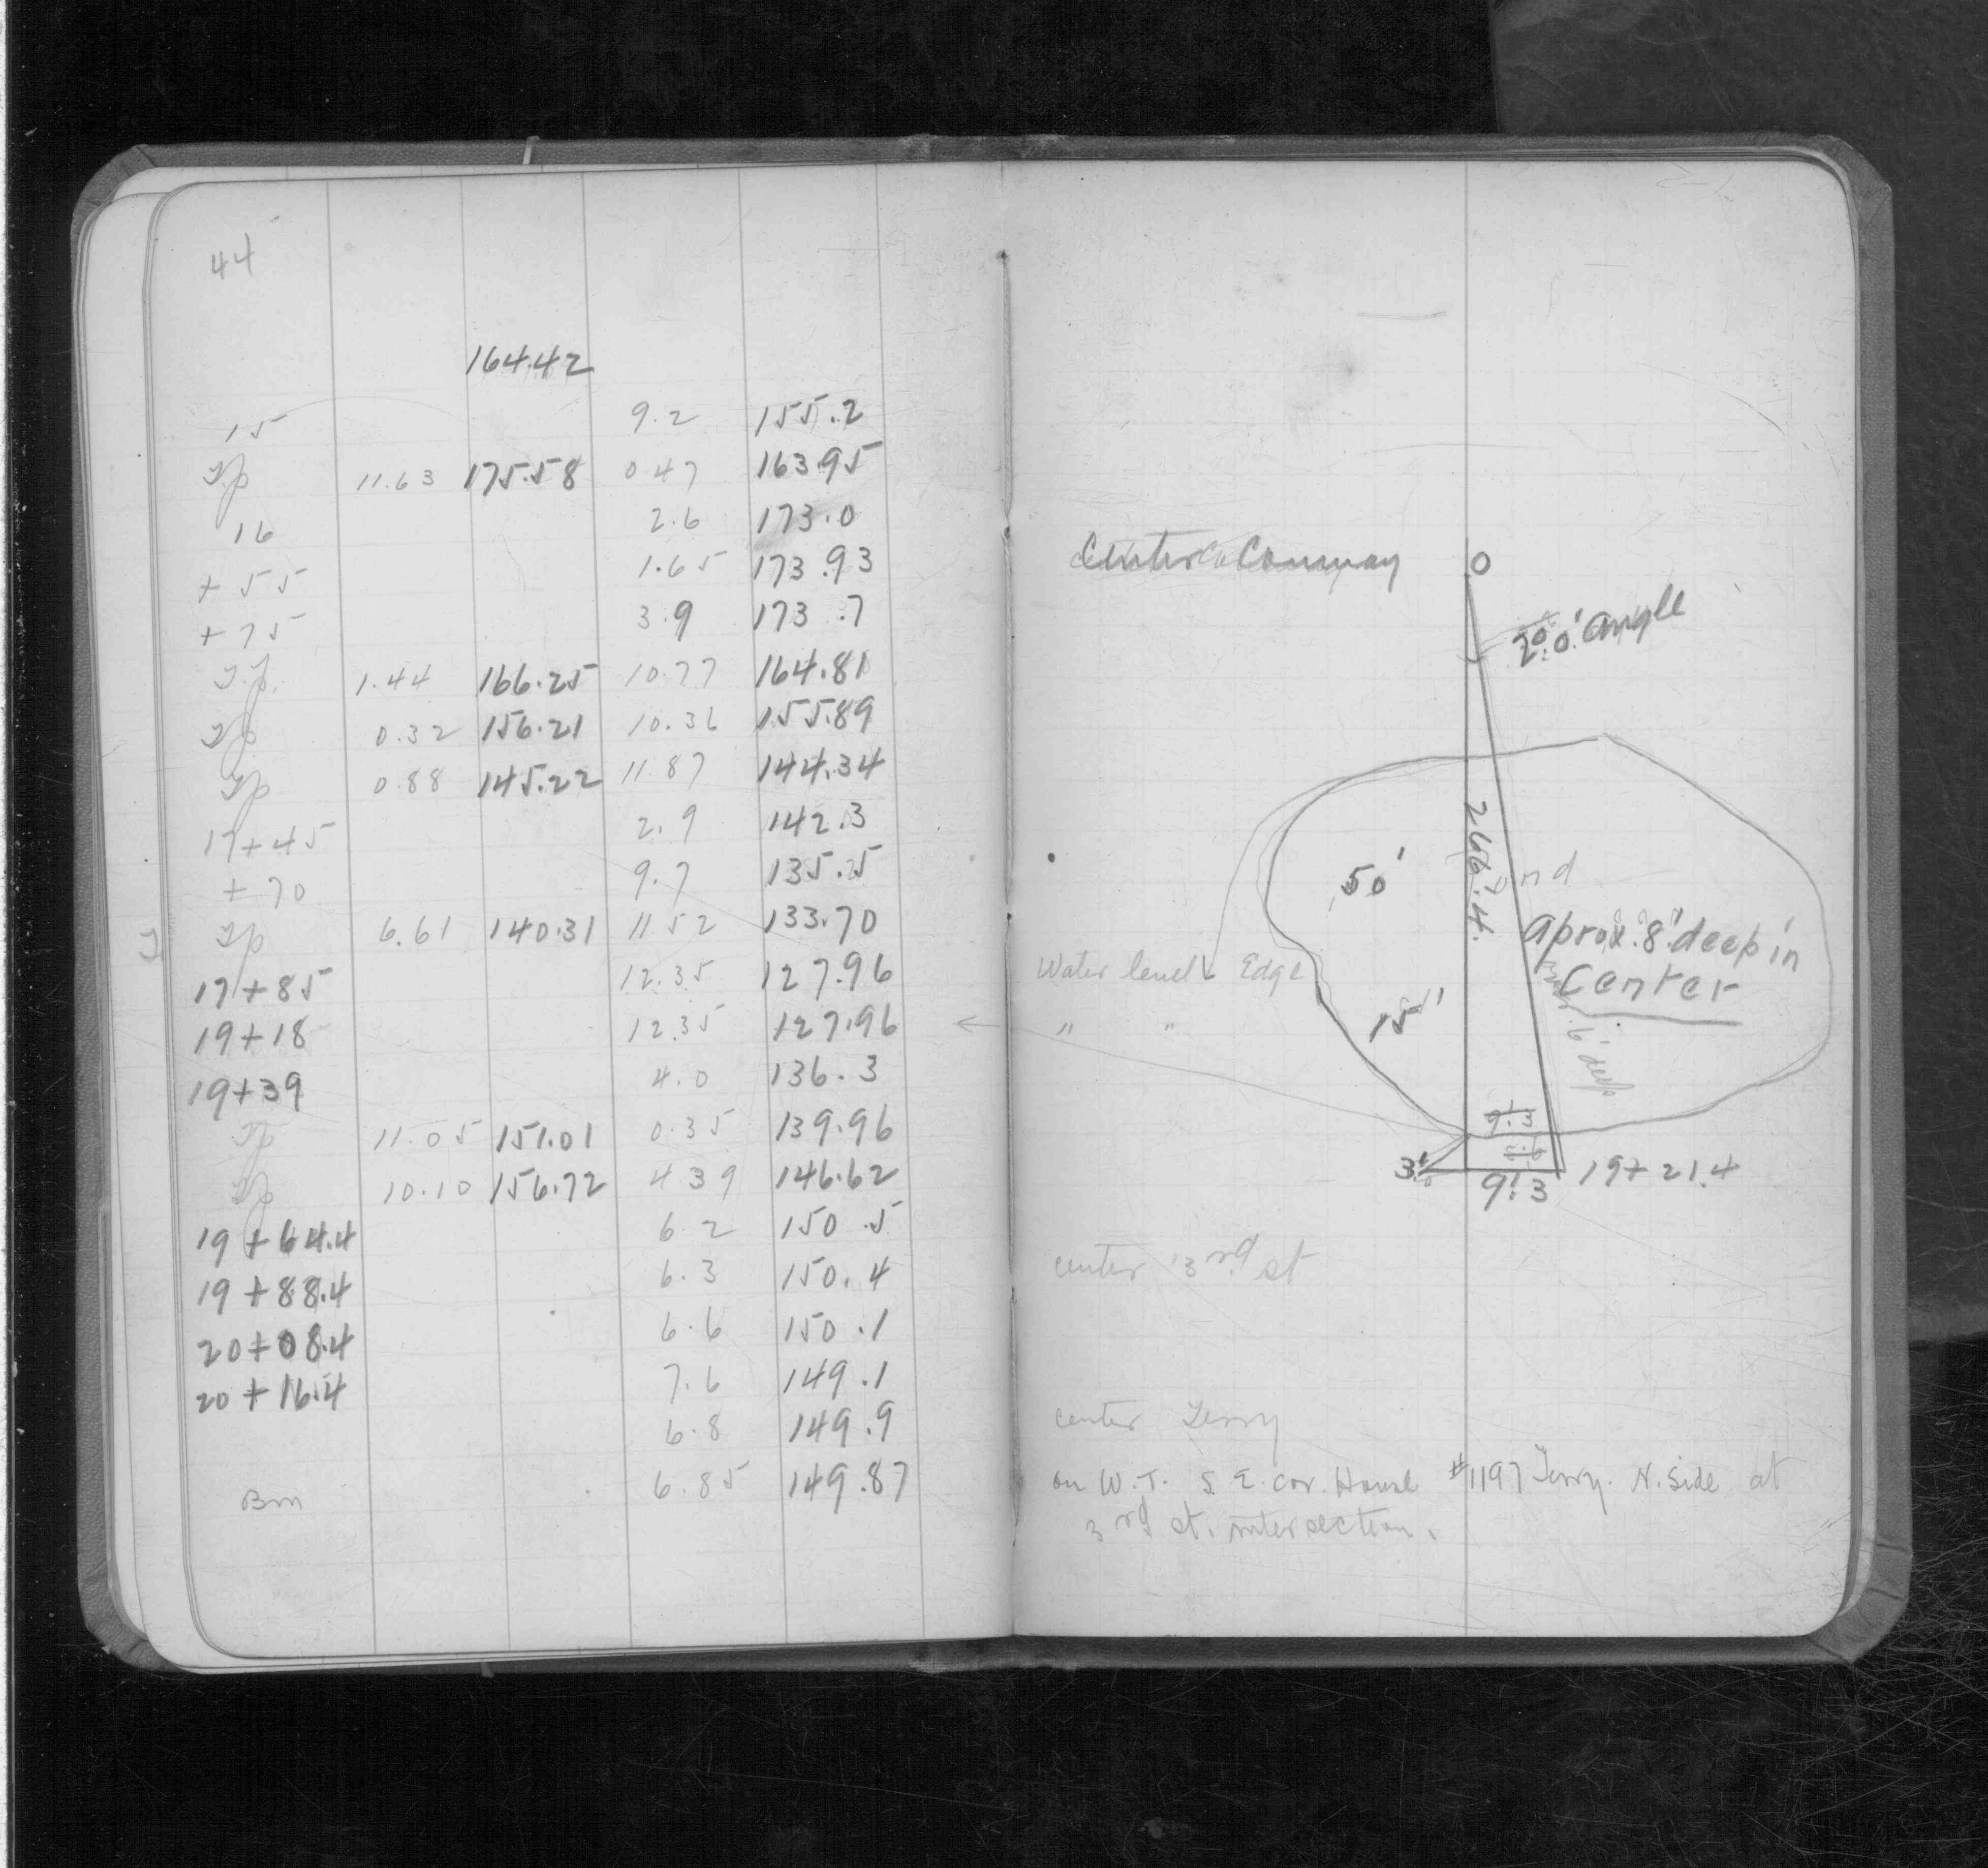 44
164.42
15 9.2 155.2
T.P. 11.63 175.58 0.47 163.95
16 2.6 173.0
+ 55 1.65 173.93
+ 75 3.9 173.7
T.P. 1.44 166.25 10.77 164.81
T.P. 0.32 156.21 10.36 155.89
T.P. 0.88 145.22 11.87 144.34
17+45 2.9 142.3
+ 70 9.7 135.5
T.P. 6.61 140.31 11.52 133.70
17+85 12.35 127.96
19+18 12.35 127.96
19+39 4.0 136.3
T.P. 11.05 151.01 0.35 139.96
T.P. 10.10 156.72 4.39 146.62
19+64.4 6.2 150.5
19+88.4 6.3 150.4
20+08.4 6.6 150.1
20+16.4 7.6 149.1
6.8 149.9
Bm 6.85 149.87
Center Conway
0
2°.0' angle
266'.4
50'
aprox. 8' deep in
Center
6' deep
Water level Edge
" "
15'
9'.3
3'.0
9'.3 19+21.4
center 3rd st
center Terry
on W.T. S.E. cor. House #1197 Terry. N. Side at
3rd st. intersection.